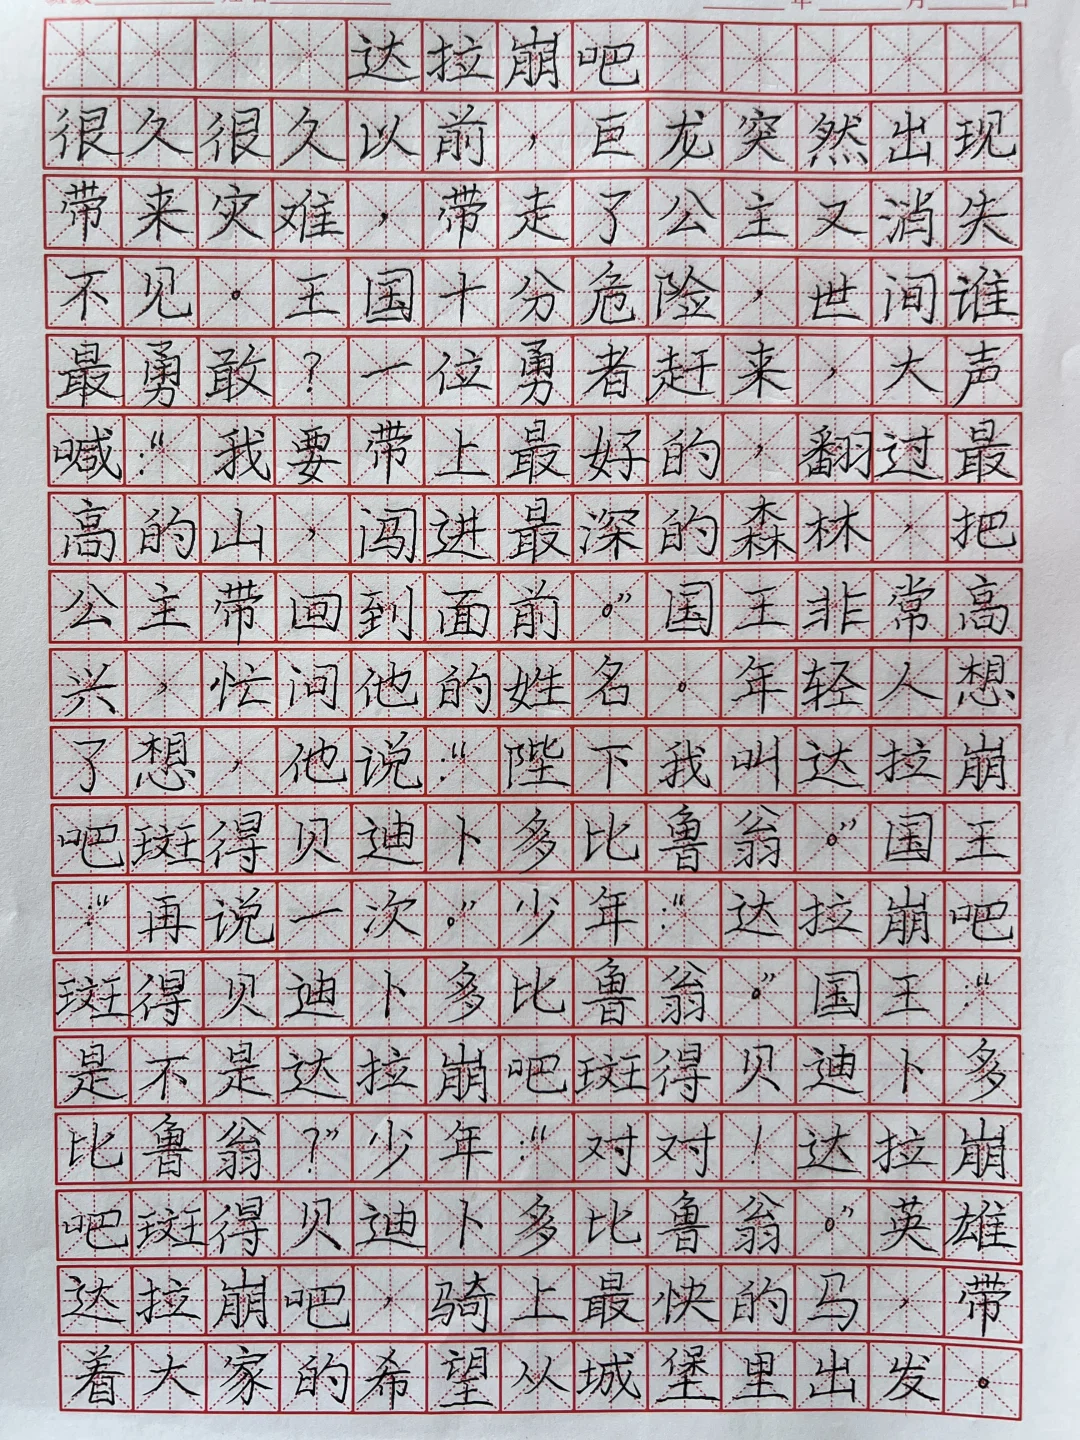 达拉崩吧
很久很久以前，巨龙突然出现
带来灾难，带走了公主又消失
不见。王国十分危险，世间谁
最勇敢？一位勇者赶来，大声
喊：“我要带上最好的，翻过最
高的山，闯进最深的森林，把
公主带回到面前。”国王非常高
兴，忙问他的姓名。年轻人想
了想，他说：“陛下我叫达拉崩
吧斑得贝迪卜多比鲁翁。”国王
：“再说一次。”少年：“达拉崩吧
斑得贝迪卜多比鲁翁。”国王：“
是不是达拉崩吧斑得贝迪卜多
比鲁翁？”少年：“对对！达拉崩
吧斑得贝迪卜多比鲁翁。”英雄
达拉崩吧，骑上最快的马，带
着大家的希望从城堡里出发。